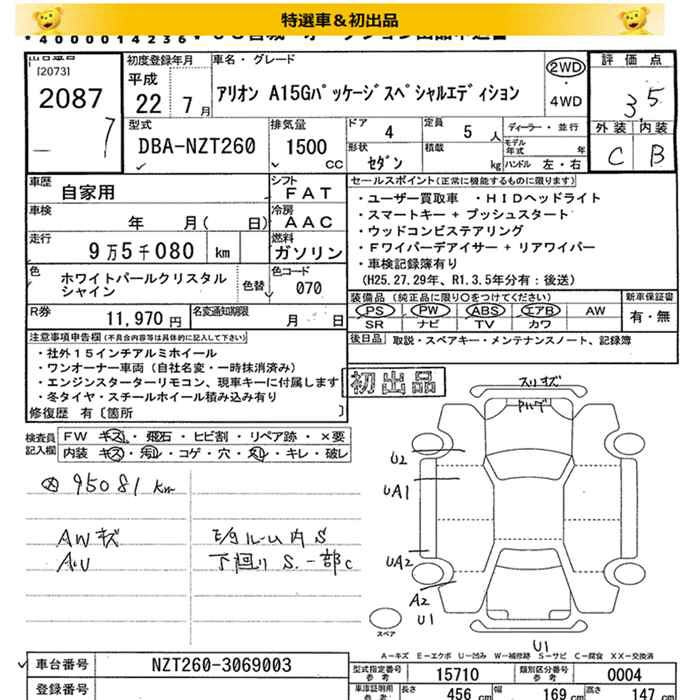 特選車＆初出品
[2073]
2087
7
初度登録年月
平成
22年 7月
車名・グレード
アリオン A15Gパッケージスペシャルエディション
2WD
・
4WD
評価点
3.5
外装 内装
C B
型式
DBA-NZT260
排気量
1500
CC
ドア 4
定員 5 人
ディーラー・並行
形状 セダン
積載 kg
モデル年式 年
ハンドル 左・右
車歴
自家用
シフト
FAT
車検
年 月( 日)
冷房
AAC
走行
9万5千080 km
燃料
ガソリン
色
ホワイトパールクリスタル
シャイン
色替
色コード
070
R券
11,970円
名変通知期限
月 日
セールスポイント(正常に機能するものに限ります)
・ユーザー買取車 ・HIDヘッドライト
・スマートキー + プッシュスタート
・ウッドコンビステアリング
・Fワイパーデアイサー + リアワイパー
・車検記録簿有り
(H25.27.29年、R1.3.5年分有：後送)
装備品 (純正品に限り○をつけてください)
PS PW ABS エアB AW
SR ナビ TV カワ
新車保証書
有・無
後日品 取説・スペアキー・メンテナンスノート、記録簿
注意事項申告欄(不具合内容等は具体的に記入して下さい)
・社外15インチアルミホイール
・ワンオーナー車両 (自社名変・一時抹消済み)
・エンジンスターターリモコン、現車キーに付属します
・冬タイヤ・スチールホイール積み込み有り
修復歴 有〔箇所 〕
初出品
検査員
記入欄
FW キズ・飛石・ヒビ割・リペア跡・×要
内装 キズ・汚れ・コゲ・穴・スレ・キレ・破レ
95081 km
AWキズ
AU
モタルーム内S
下回りS.一部C
スリキズ
U2
UA1
UA2
A2
U1
U1
スペア
A－キズ E－エクボ U－凹み W－補修跡 S－サビ C－腐食 XX－交換済
車台番号 NZT260-3069003
登録番号
型式指定番号
参考
15710
類別区分番号
参考
0004
車庫証明用
参考
長さ 456 cm
幅 169 cm
高さ 147 cm